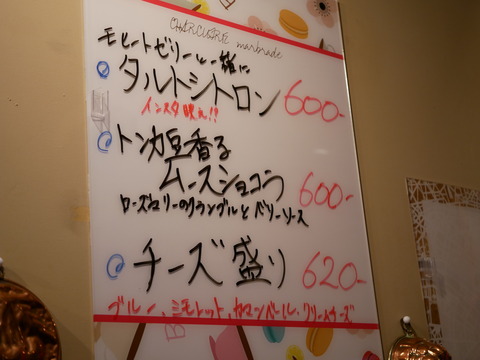 CHARCUTERIE marbrade
モヒートゼリーと一緒に
タルトシトロン 600-
インスタ映え!!
トンカ豆香る
ムースショコラ 600-
ローズマリーのクランブルとベリーソース
チーズ盛り 620-
ブルー、ミモレット、カマンベール、クリームチーズ